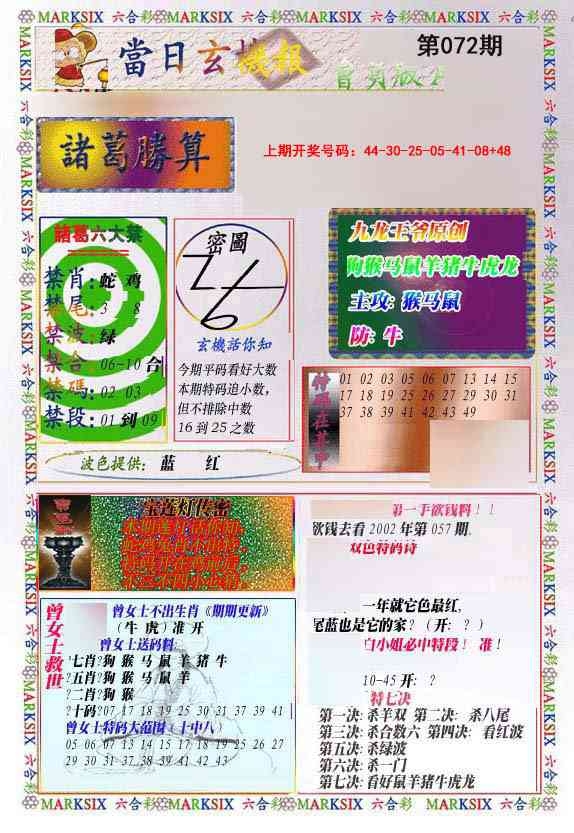 MARKSIX 六合彩 MARKSIX 六合彩 MARKSIX 六合彩 MARKSIX 六合彩 MARKSIX 六合彩
當日玄機報
第072期
諸葛勝算
上期开奖号码：44-30-25-05-41-08+48
諸葛六大禁
禁肖：蛇 鸡
禁尾：3 8
禁波：绿
禁合：06-10合
禁碼：02 03
禁段：01到09
密圖
玄機話你知
今期平码看好大数
本期特码追小数，
但不排除中数
16到25之数
九龙王爷原创
狗猴马鼠羊猪牛虎龙
主攻：猴马鼠
防：牛
特码在其中
01 02 03 05 06 07 13 14 15
17 18 19 25 26 27 29 30 31
37 38 39 41 42 43 49
波色提供： 蓝 红
宝莲灯传密
曾女士救世
曾女士不出生肖《期期更新》
（牛 虎）准 开
曾女士送码料
?七肖?狗 猴 马 鼠 羊 猪 牛
?五肖?狗 猴 马 鼠 羊
?二肖?狗 猴
?十码?07 17 18 19 25 30 31 37 39 41
曾女士特码大范围（十中八）
05 06 07 13 14 15 17 18 19 25 26 27
29 30 31 37 38 39 41 42 43
第一手欲钱料！！
欲钱去看2002年第057期.
双色特码诗
一年就它色最红,
尾蓝也是它的家？（开：？）
白小姐必中特段！ 准！
10-45 开：？
特七决
第一决：杀羊双 第二决：杀八尾
第三决：杀合数六 第四决：看红波
第五决：杀绿波
第六决：杀一门
第七决：看好鼠羊猪牛虎龙
MARKSIX 六合彩 MARKSIX 六合彩 MARKSIX 六合彩 MARKSIX 六合彩 MARKSIX 六合彩